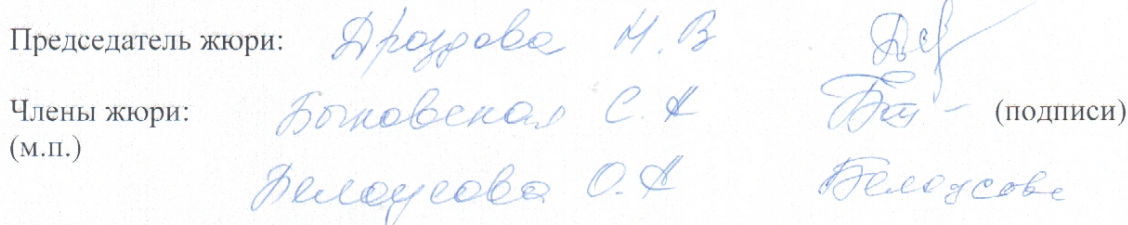 Председатель жюри: Дроздова Н. В
Члены жюри: Быковская С. А (подписи)
(м.п.)
Белоусова О. А Белоусова